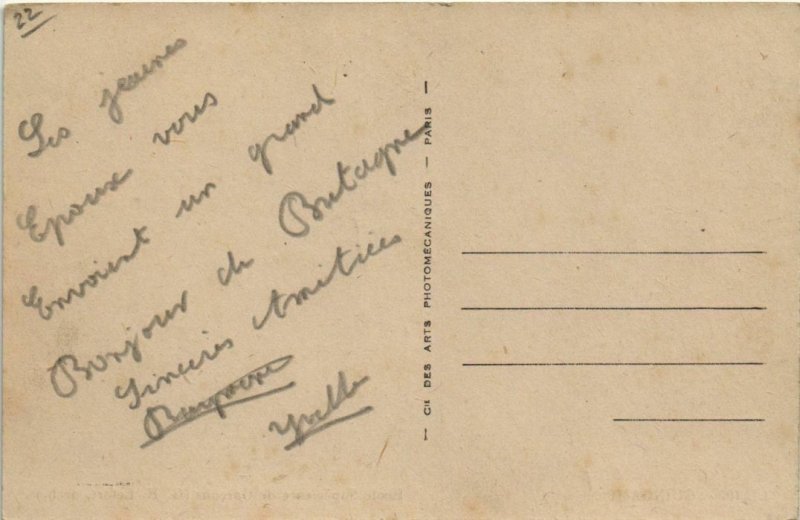 22
Les jeunes
Epoux vous
Envoient un grand
Bonjour de Bretagne
Sincères Amitiées
Yvette
— Cie DES ARTS PHOTOMÉCANIQUES — PARIS —